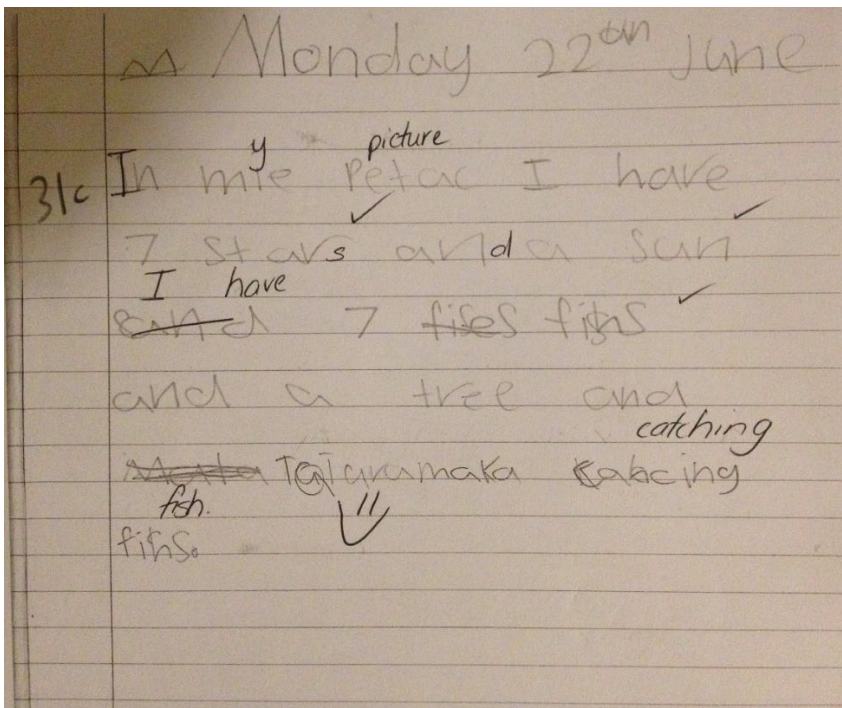 Monday 22 June
y picture
31c In mie Petac I have
7 stars and a sun
I have
and 7 fises fihs
and a tree and
catching
TaTaramaka cabcing
fish.
fihs.